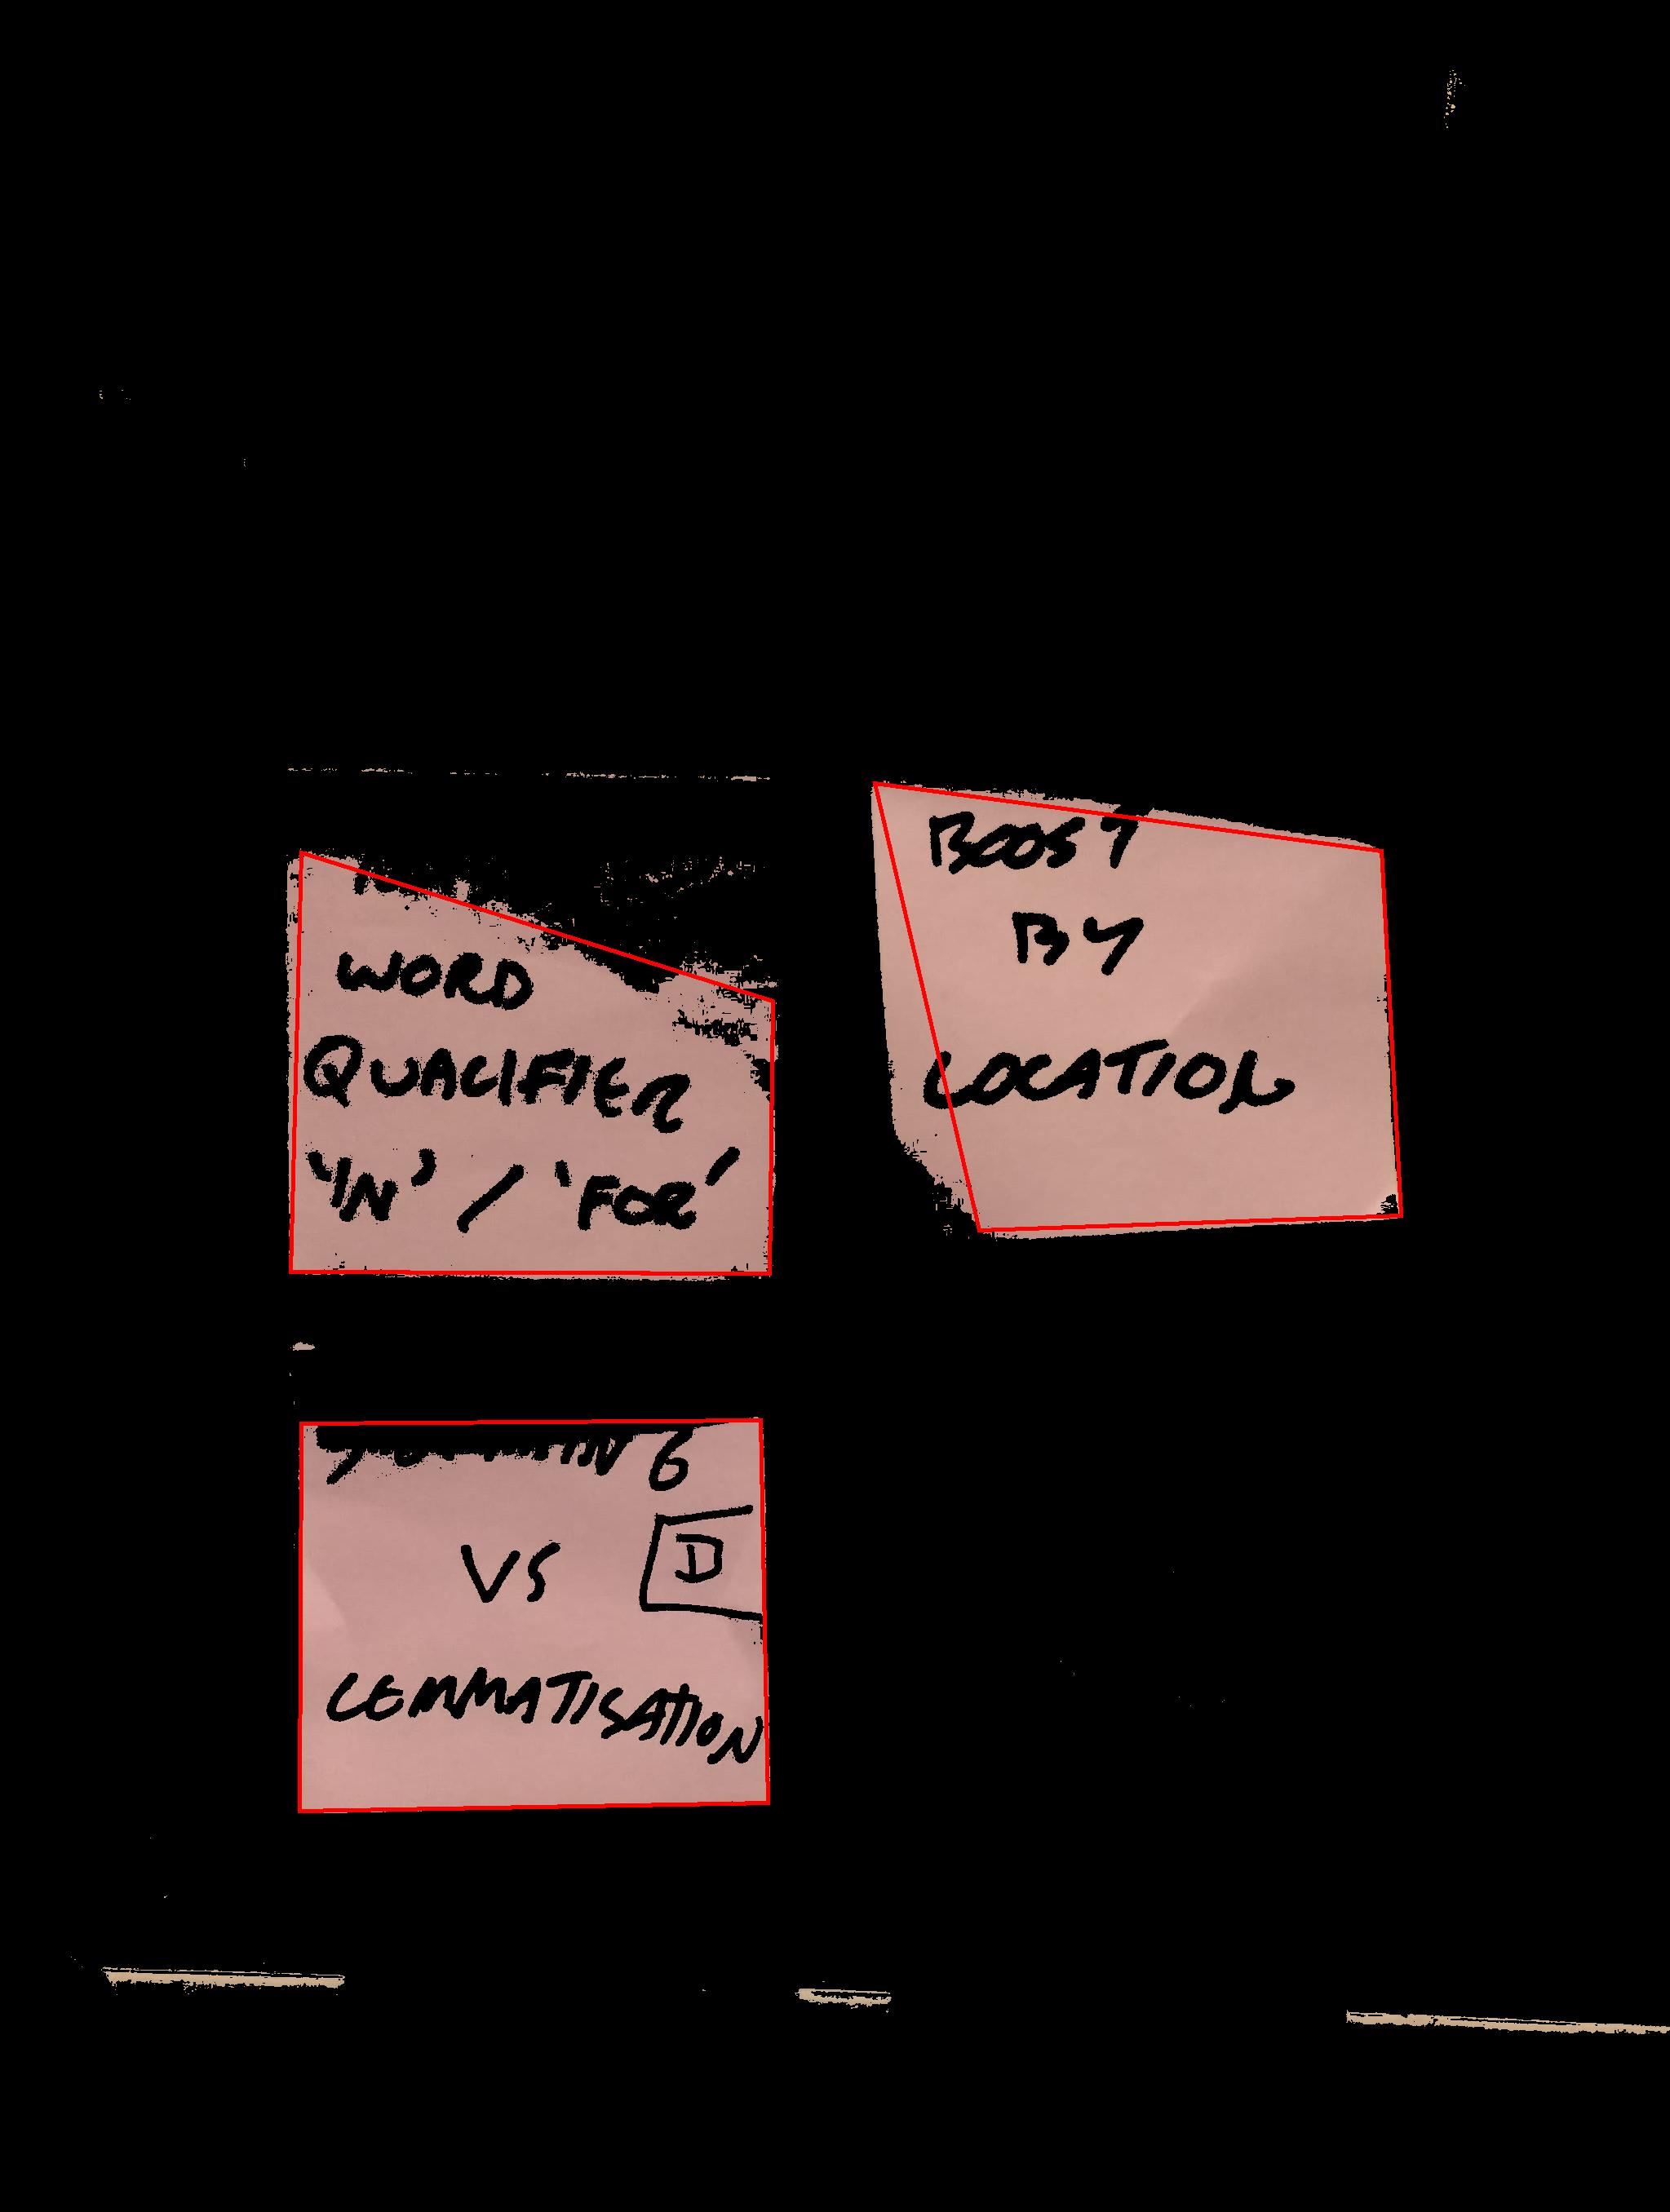 WORD
QUALIFIER
'IN' / 'FOR'
BOOST
BY
LOCATION
VS
D
LEMMATISATION